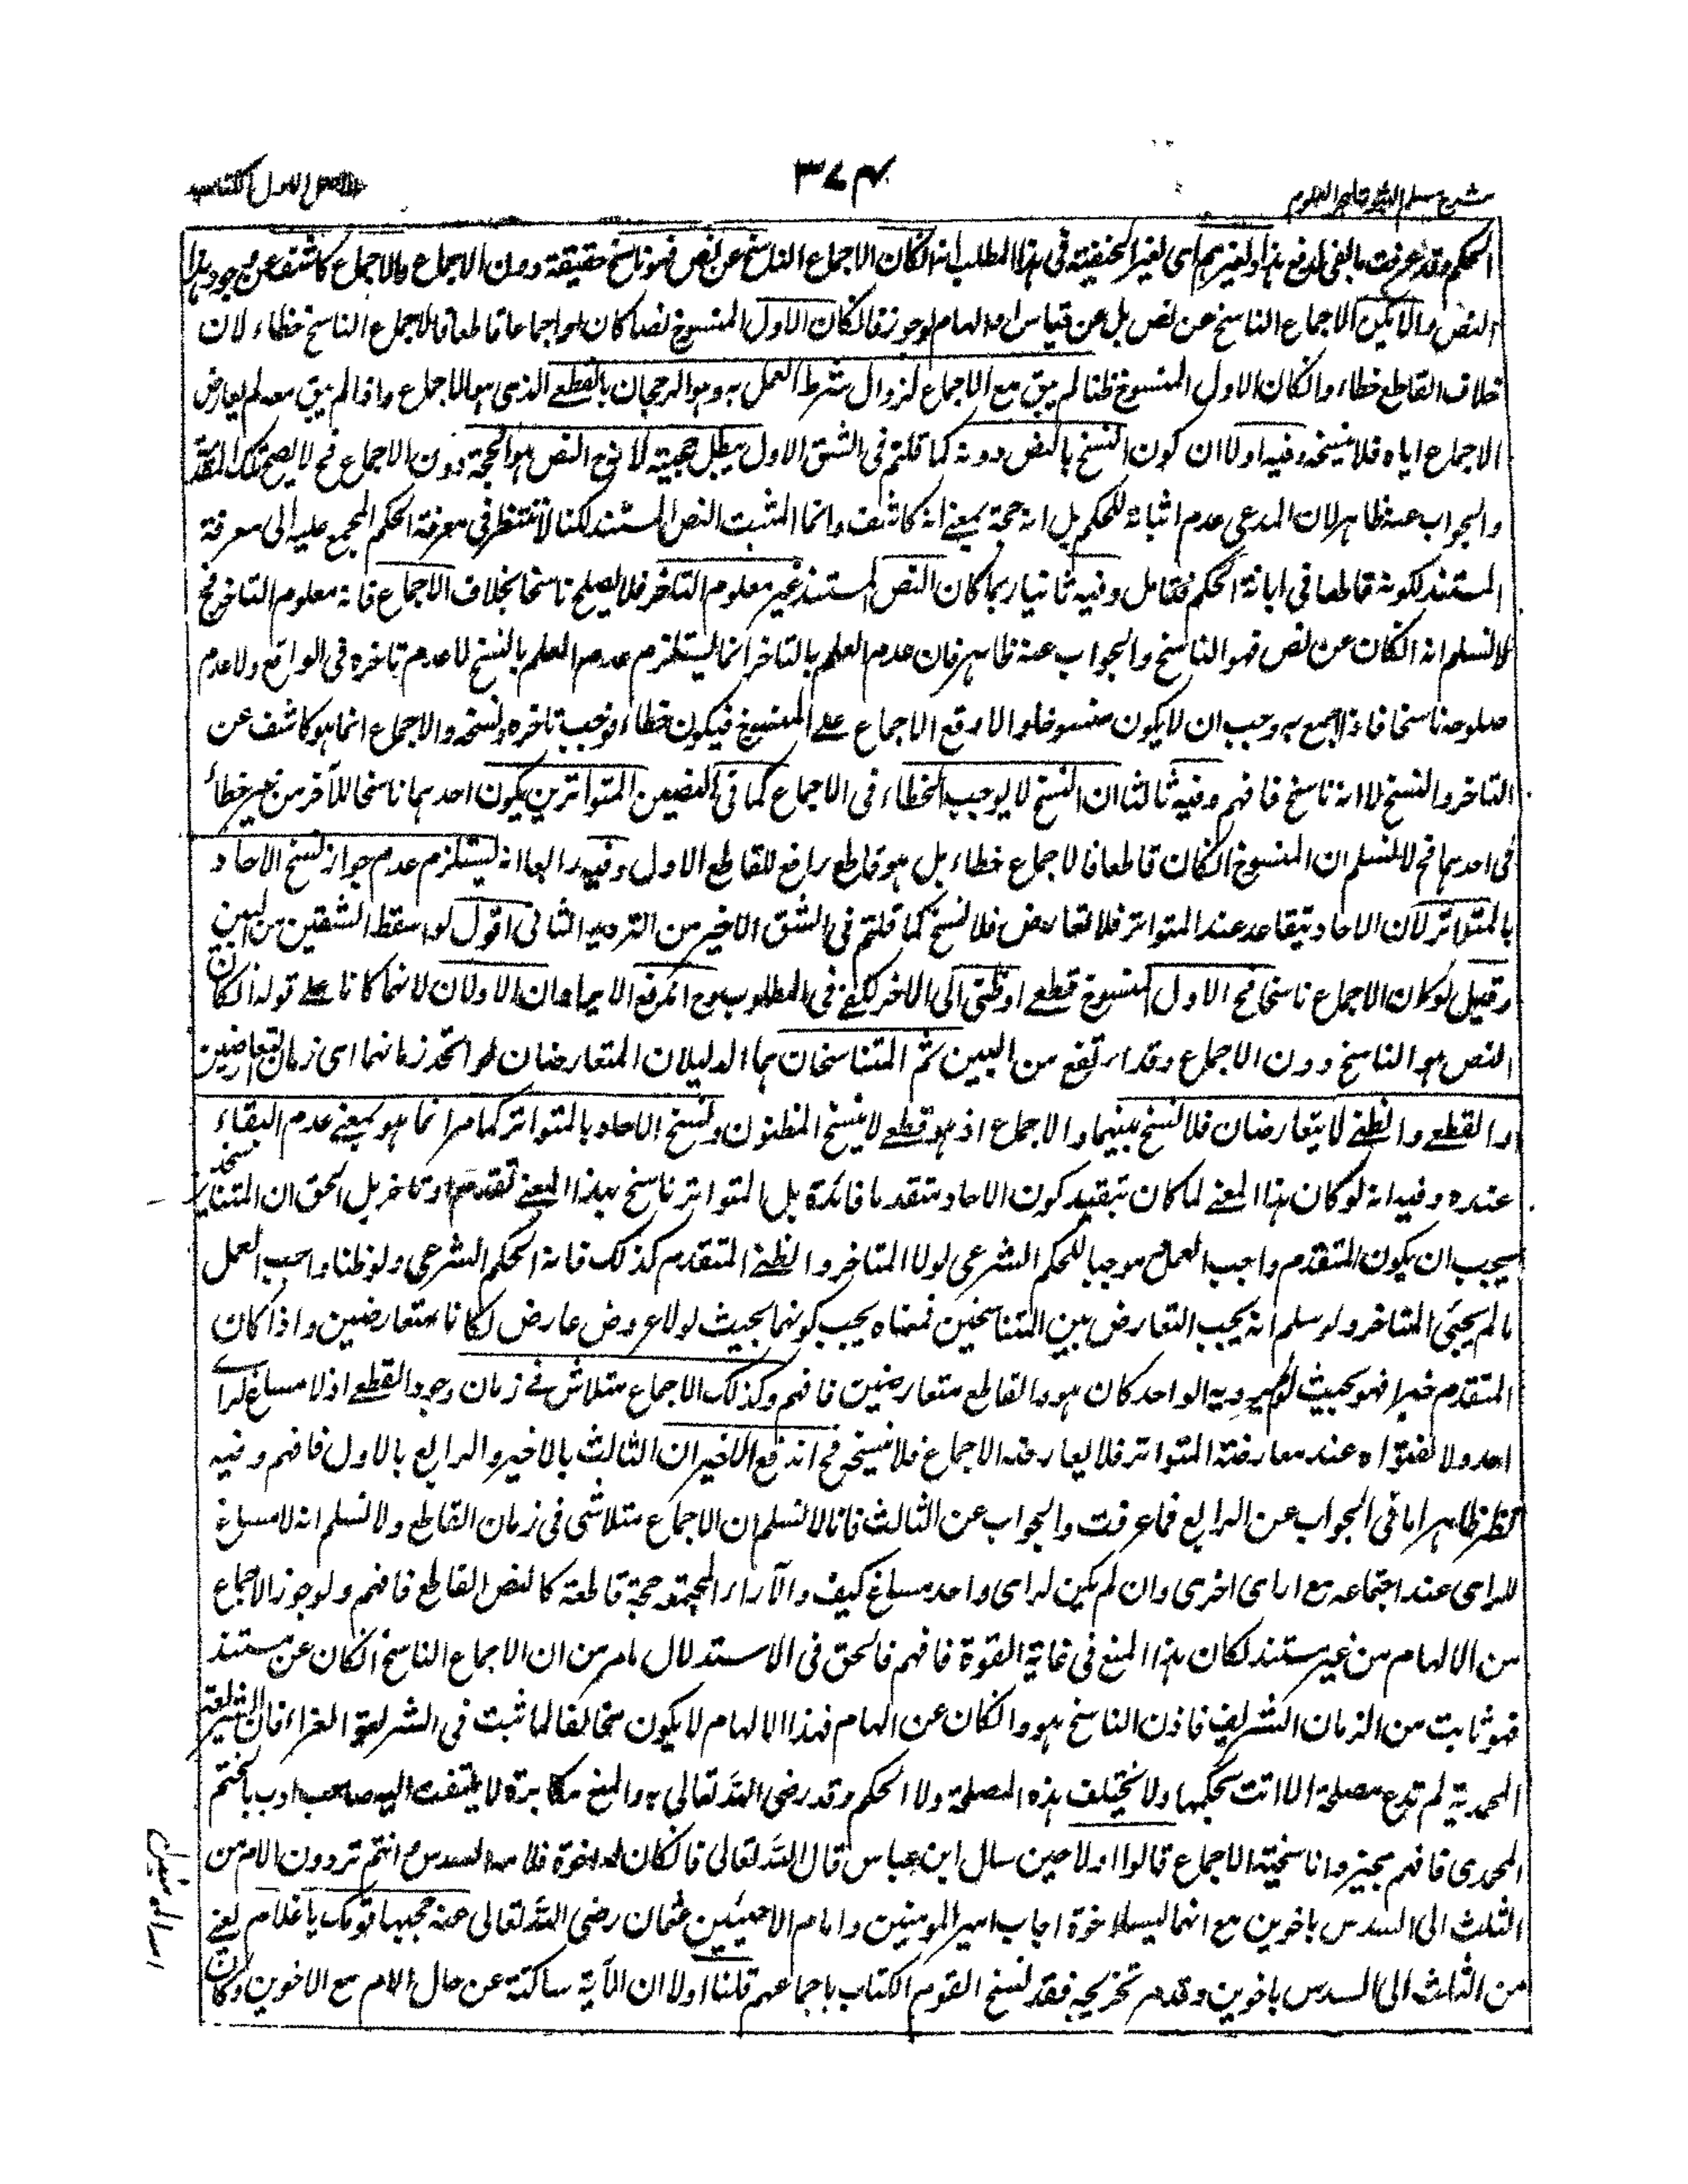 شرح مسلم الثبوت لبحر العلوم
٣٧٤
الاصل الاول الكتاب
الحكم وقد عرفت ما يفى لدفع هذا ولغيرهم اى لغير الحنفية فى هذا المطلب انه انكان الاجماع الناسخ عن نص فهو ناسخ حقيقة دون الاجماع والاجماع كاشف عن وجود هذا
النص والا يكن الاجماع الناسخ عن نص بل عن قياس او الهام لو جوز فانكان الاول المنسوخ نصا كان او اجماعا قاطعا فالاجماع الناسخ خطاء لان
خلاف القاطع خطاء وانكان الاول المنسوخ ظنا لم يبق مع الاجماع لزوال شرط العمل به وهو الرجحان بالقطعے الذى هو الاجماع واذا لم يبق معه لم يعارض
الاجماع اياه فلا ينسخه وفيه اولا ان كون النسخ بالنص دونه كما قلتم فى الشق الاول يبطل حجيته لانه ح النص هو الحجة دون الاجماع فح لا يصح
والجواب عنه ظاهر لان المدعى عدم اثباته للحكم بل انه حجة بمعنے انه كاشف وانما المثبت النص المستند لكنا لا ننتظر فى معرفة الحكم المجمع عليه الى معرفة
المستند لكونه قاطعا فى ابانة الحكم فتامل وفيه ثانيا ربما كان النص المستند غير معلوم التاخر فلا يصلح ناسخا بخلاف الاجماع فانه معلوم التاخر فح
لا نسلم انه انكان عن نص فهو الناسخ والجواب عنه ظاهر فان عدم العلم بالتاخر انما يستلزم عدم العلم بالنسخ لا عدم تاخره فى الواقع ولا عدم
صلوحه ناسخا فاذا اجمع به وجب ان لا يكون منسوخا والا لوقع الاجماع علے المنسوخ فيكون خطاء فوجب تاخره ونسخه والاجماع انما هو كاشف عن
التاخر والنسخ لا انه ناسخ فافهم وفيه ثالثا ان النسخ لا يوجب الخطاء فى الاجماع كما فى النصين المتواترين يكون احدهما ناسخا للآخر من غير خطأ
فى احدهما فح لا نسلم ان المنسوخ انكان قاطعا فالاجماع خطاء بل هو قاطع رافع للقاطع الاول وفيه رابعا انه يستلزم عدم جواز نسخ الاحاد
بالمتواتر لان الاحاد يتقاعد عند المتواتر فلا تعارض فلا نسخ كما قلتم فى الشق الاخير من الترديد الثانى اقول لو اسقط الشقين من البين
وقيل لو كان الاجماع ناسخا فح الاول المنسوخ قطعے او ظنى الى الاخر لكفے فى المطلوب وح اندفع الايرادان الاولان لانهما كانا علے قوله انكان
النص هو الناسخ دون الاجماع وقد ارتفع من البين ثم المتناسخان هما الدليلان المتعارضان لو اتحد زمانهما اى زمان المتعارضين
والقطعے والظنے لا يتعارضان فلا نسخ بينهما والاجماع اذ هو قطعے لا ينسخ المظنون ونسخ الاحاد بالمتواتر كما مر انما هو بمعنے عدم البقاء
عنده وفيه انه لو كان هذا المعنے لما كان تبقيد كون الاحاد متقدما فائدة بل المتواتر ناسخ بهذا المعنے تقدم او تاخر بل الحق ان المتناسخين
يجب ان يكون المتقدم واجب العمل موجبا للحكم الشرعى لولا المتاخر والظنے المتقدم كذلك فانه الحكم الشرعى ولو ظنا واجب العمل
ما لم يجئ المتاخر ولو سلم انه يجب التعارض بين المتناسخين فمعناه يجب كونهما بحيث لولا عروض عارض لكانا متعارضين واذا كان
المتقدم خبرا فهو بحيث لو لم يرويه الواحد كان هو والقاطع متعارضين فافهم وكذلك الاجماع متلاش فے زمان وجود القطعے اذ لا مساغ لراے
احد ولا لفتواه عند معارضة المتواتر فلا يعارضه الاجماع فلا ينسخه فح اندفع الاخيران الثالث بالاخير والرابع بالاول فافهم وفيه
نظر ظاهر اما فى الجواب عن الرابع فما عرفت والجواب عن الثالث فانا لا نسلم ان الاجماع متلاشى فى زمان القاطع ولا نسلم انه لا مساغ
للراى عند اجتماعه مع اراى اخرى وان لم يكن لراى واحد مساغ كيف والآراء المجتمعة حجة قاطعة كالنص القاطع فافهم ولو جوز الاجماع
من الالهام من غير مستند لكان هذا المنع فى غاية القوة فافهم فالحق فى الاستدلال ما مر من ان الاجماع الناسخ انكان عن مستند
فهو ثابت من الزمان الشريف فاذن الناسخ هو وانكان عن الهام فهذا الالهام لا يكون مخالفا لما ثبت فى الشريعة الغراء فان الشريعة
المحمدية لم تدع مصلحة الا اتت بحكمها ولا يختلف هذه المصلحة ولا الحكم وقد رضى الله تعالى به والمنع مكابرة لا يلتفت اليه صاحب ادب بالختم
المحمدى فافهم مجيزوا ناسخية الاجماع قالوا اولا حين سال ابن عباس قال الله تعالى فانكان له اخوة فلامه السدس وانتم تردون الام من
الثلث الى السدس باخوين مع انهما ليسا اخوة اجاب امير المومنين وامام الاحيين عثمان رضى الله تعالى عنه حجبها قومك يا غلام يعنے
من الثلث الى السدس باخوين وقد مر تخريجه فقد نسخ القوم الكتاب باجماعهم قلنا اولا ان الآية ساكتة عن حال الام مع الاخوين وكان